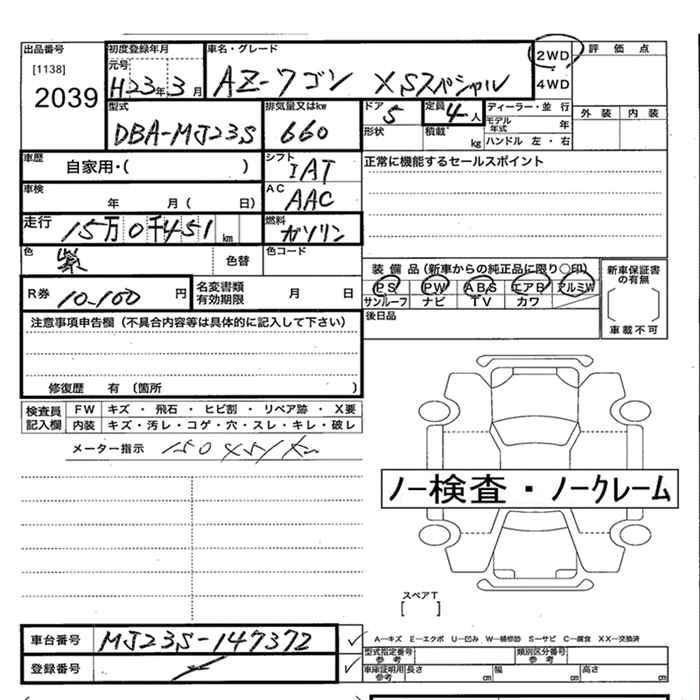 出品番号 初度登録年月 車名・グレード 2WD・4WD 評価点
[1138] 元号 H23年3月 AZ-ワゴン XSスペシャル
2039 型式 排気量又はkw ドア 5 定員 4人 ディーラー・並行 外装 内装
DBA-MJ23S 660 形状 積載 kg モデル年式 年
ハンドル 左・右
車歴 自家用・( ) シフト IAT 正常に機能するセールスポイント
車検 年 月( 日) AC AAC
走行 15万0千451km 燃料 ガソリン
色 紫 色替 色コード 装備品(新車からの純正品に限り○印) 新車保証書の有無
PS PW ABS エアB アルミW
R券 10-100円 名変書類有効期限 月 日 サンルーフ ナビ TV カワ [ ]
注意事項申告欄(不具合内容等は具体的に記入して下さい) 後日品 車載不可
修復歴 有(箇所 )
検査員記入欄 FW キズ・飛石・ヒビ割・リペア跡・X要
内装 キズ・汚レ・コゲ・穴・スレ・キレ・破レ
メーター指示 150451km
ノー検査・ノークレーム
スペアT
[ ]
車台番号 MJ23S-147372 ✓ A―キズ E―エクボ U―凹み W―補修跡 S―サビ C―腐食 XX―交換済
型式指定番号 参考 類別区分番号 参考
登録番号 ✓ 車庫証明用 参考 長さ cm 幅 cm 高さ cm